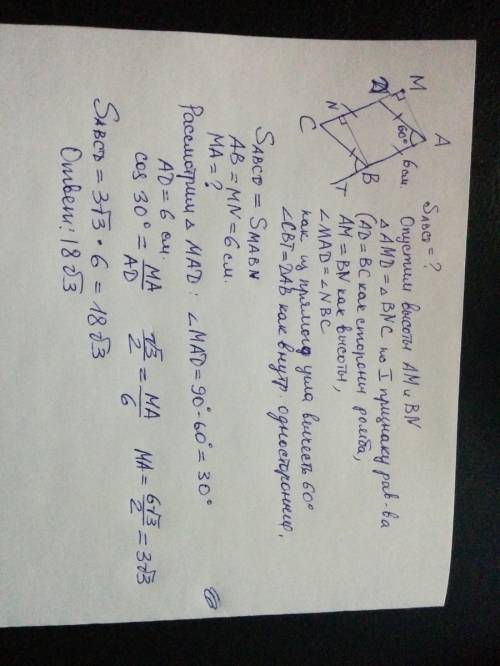 M
A
D
60°
6 см.
N
C
B
T
SABCD = ?
Опустим высоты AM и BN
△ AMD = △ BNC по I признаку рав-ва
(AD = BC как стороны ромба,
AM = BN как высоты,
∠MAD = ∠NBC
как из прямого угла вычесть 60°
∠CBT = DAB как внутр. односторонние.
SABCD = SMABN
AB = MN = 6 см.
MA = ?
Рассмотрим △ MAD: ∠MAD = 90° - 60° = 30°
AD = 6 см.
cos 30° = MA/AD √3/2 = MA/6 MA = 6√3/2 = 3√3
SABCD = 3√3 · 6 = 18√3
Ответ: 18√3